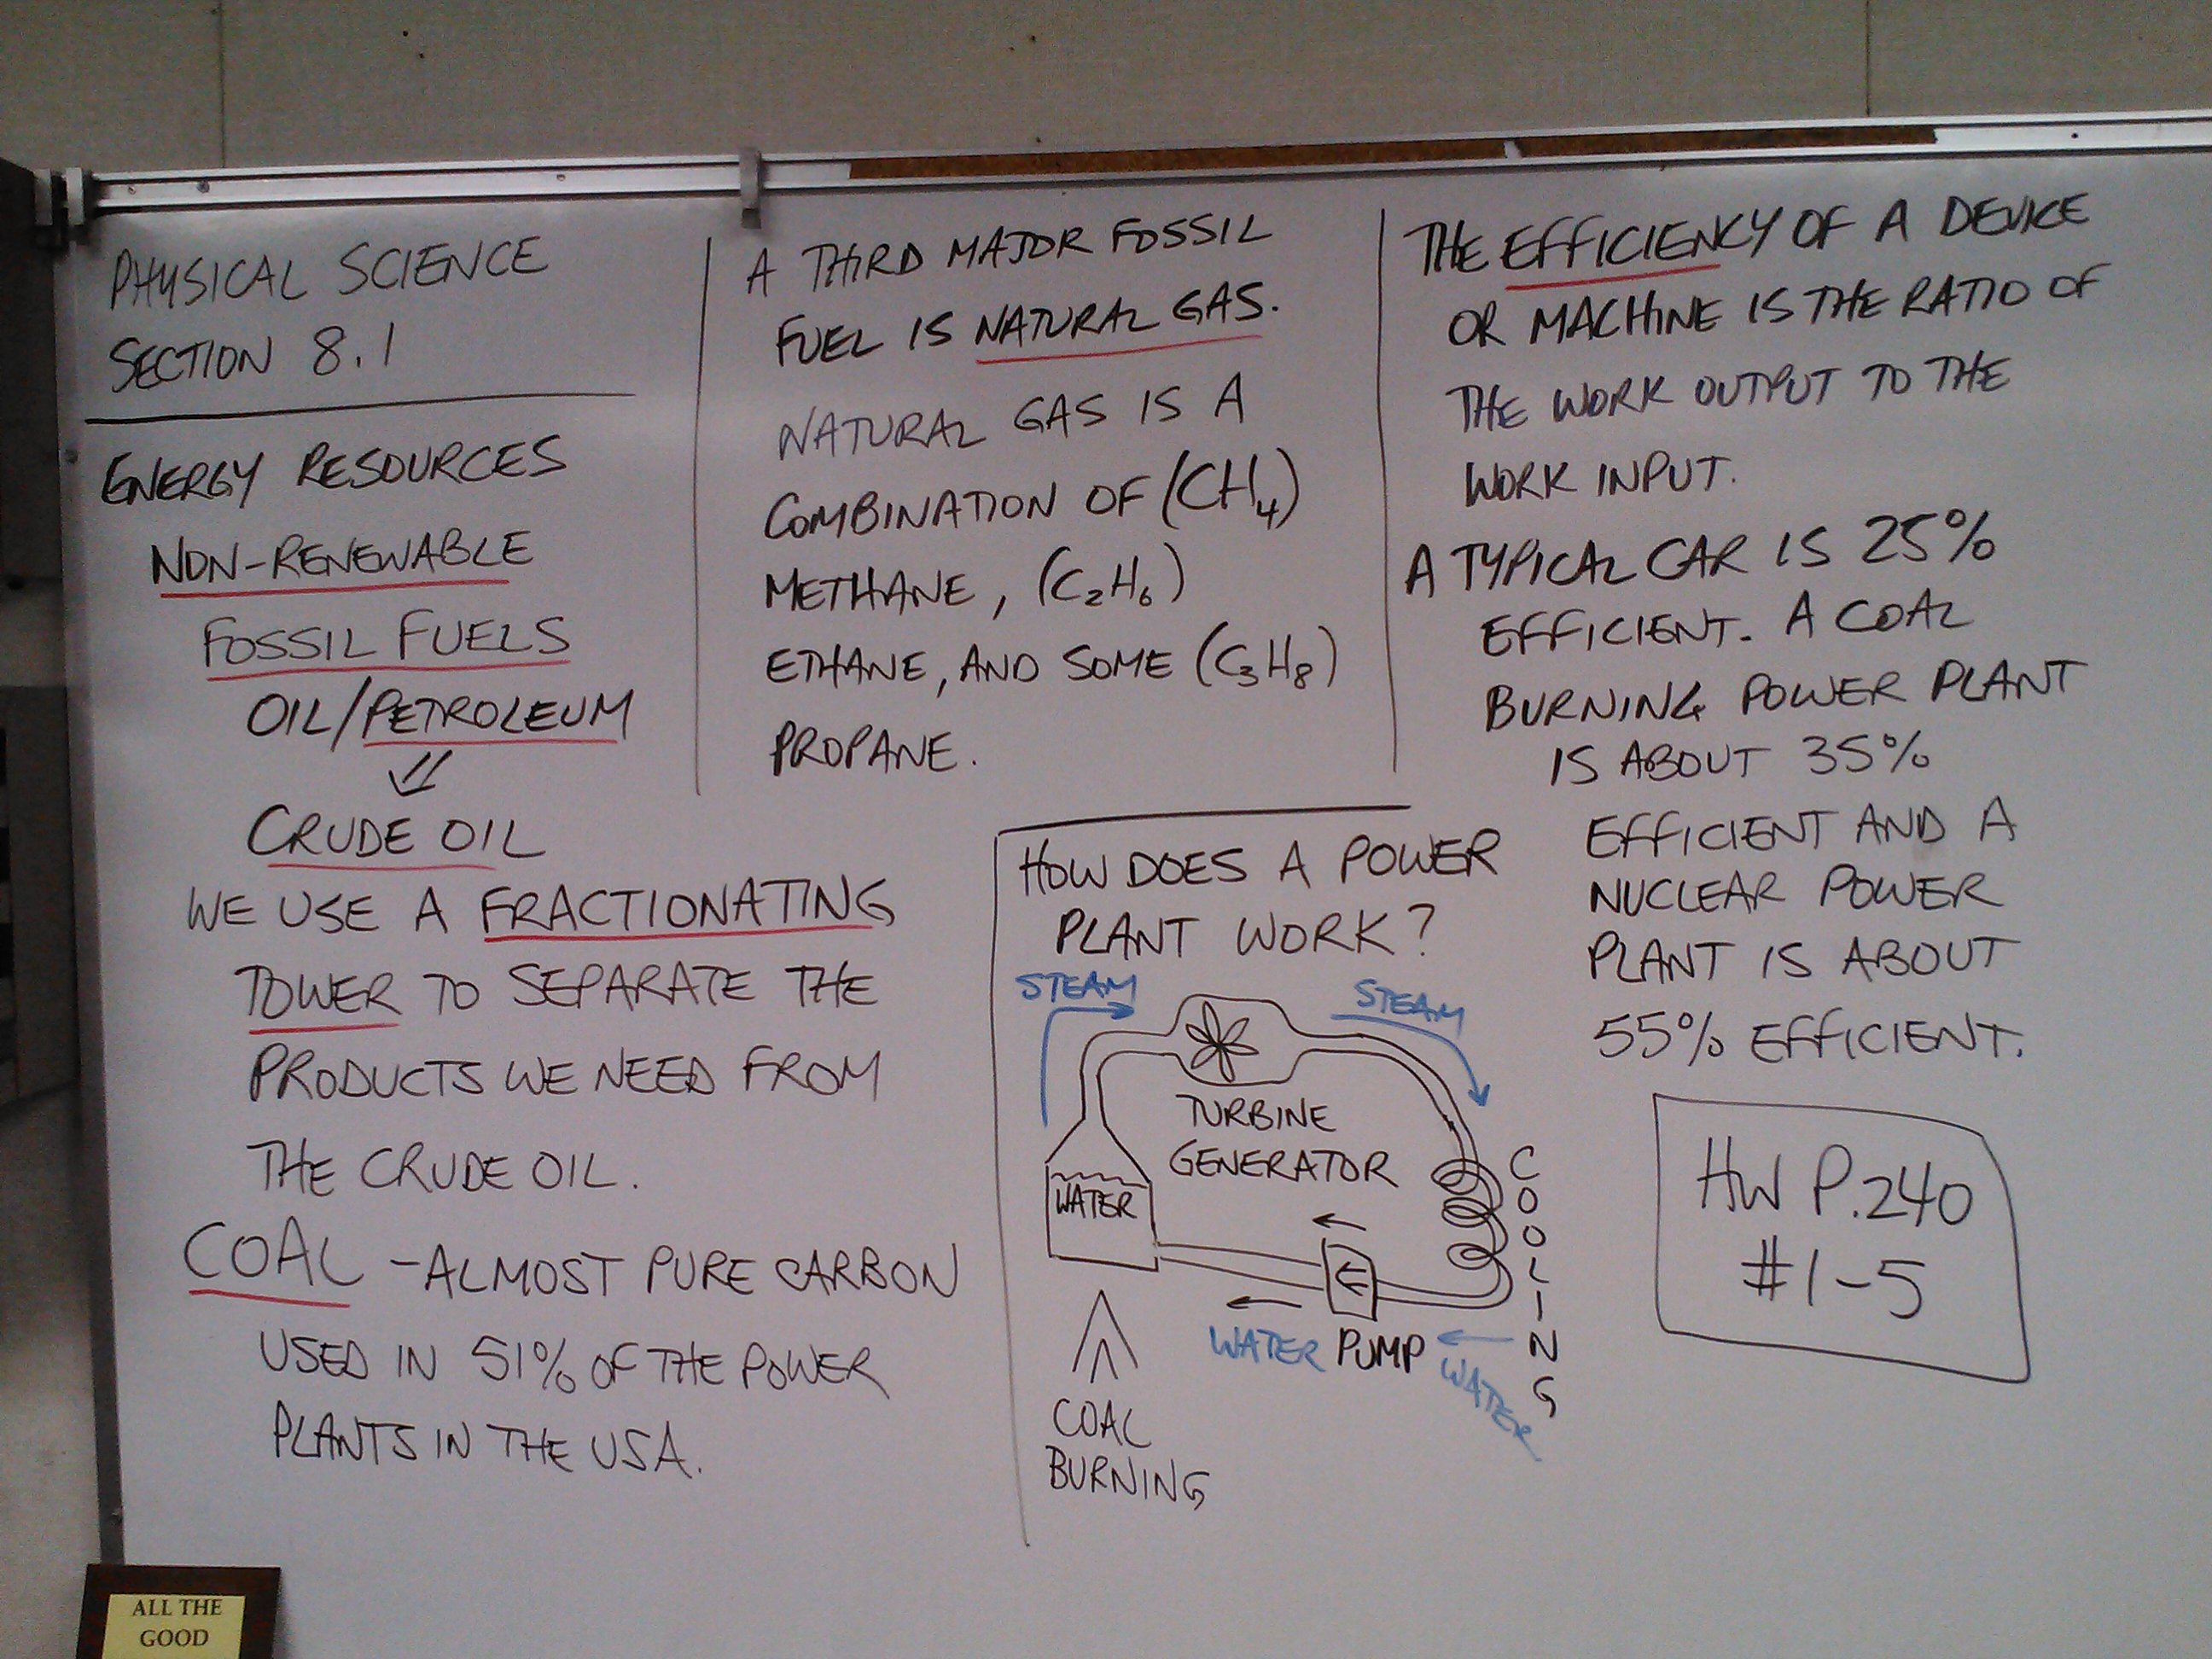 PHYSICAL SCIENCE
SECTION 8.1
ENERGY RESOURCES
NON-RENEWABLE
FOSSIL FUELS
OIL/PETROLEUM
CRUDE OIL
WE USE A FRACTIONATING
TOWER TO SEPARATE THE
PRODUCTS WE NEED FROM
THE CRUDE OIL.
COAL - ALMOST PURE CARBON
USED IN 51% OF THE POWER
PLANTS IN THE USA.
A THIRD MAJOR FOSSIL
FUEL IS NATURAL GAS.
NATURAL GAS IS A
COMBINATION OF (CH₄)
METHANE, (C₂H₆)
ETHANE, AND SOME (C₃H₈)
PROPANE.
HOW DOES A POWER
PLANT WORK?
STEAM
STEAM
TURBINE
GENERATOR
WATER
COOLING
WATER PUMP WATER
COAL
BURNING
THE EFFICIENCY OF A DEVICE
OR MACHINE IS THE RATIO OF
THE WORK OUTPUT TO THE
WORK INPUT.
A TYPICAL CAR IS 25%
EFFICIENT. A COAL
BURNING POWER PLANT
IS ABOUT 35%
EFFICIENT AND A
NUCLEAR POWER
PLANT IS ABOUT
55% EFFICIENT.
HW P.240
#1-5
ALL THE
GOOD